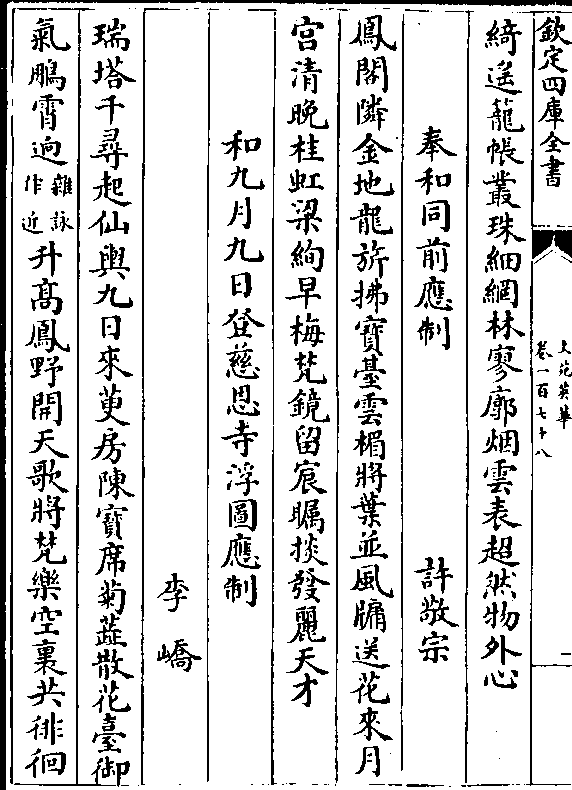 欽定四庫全書
文苑英華
卷一百七十八
二
綺遥籠帳叢珠細網林寥廓烟雲表超然物外心
奉和同前應制 許敬宗
鳳閣隣金地龍旂拂寶臺雲楣將葉並風牖送花來月
宫清晚桂虹梁絢早梅梵鏡留宸矚掞發麗天才
和九月九日登慈恩寺浮圖應制
李嶠
瑞塔千尋起仙輿九日來萸房陳寶席菊蘂散花臺御
氣鵬霄逈雜詠作近升髙鳳野開天歌將梵樂空裏共徘徊